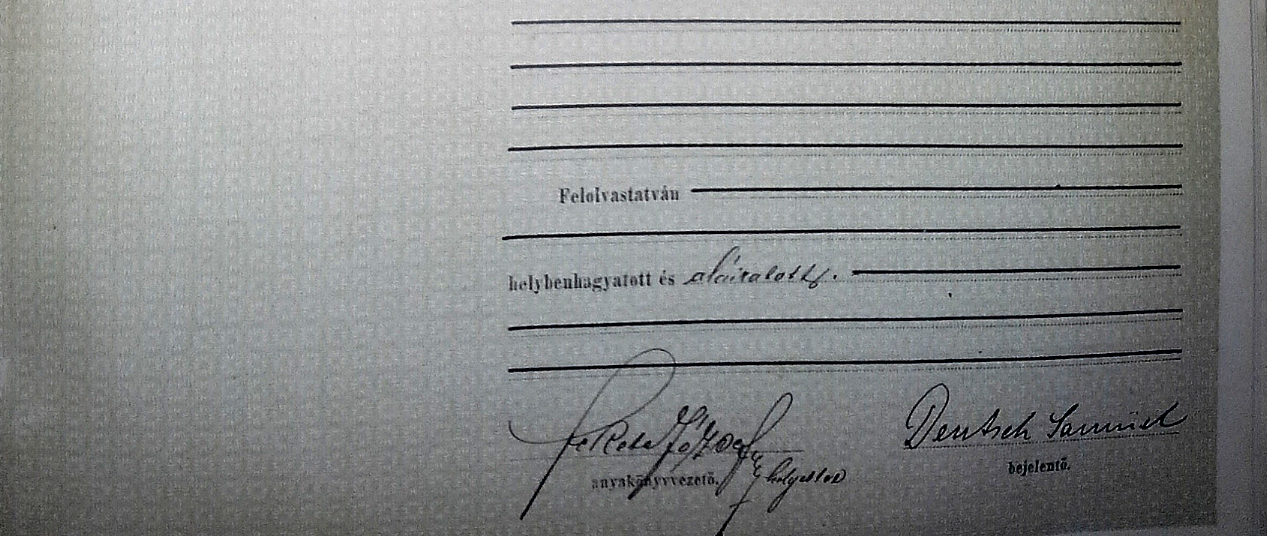 Felolvastatván
helybenhagyatott és aláiratott.
Fekete József Deutsch Samuel
anyakönyvvezető. helyettes bejelentő.